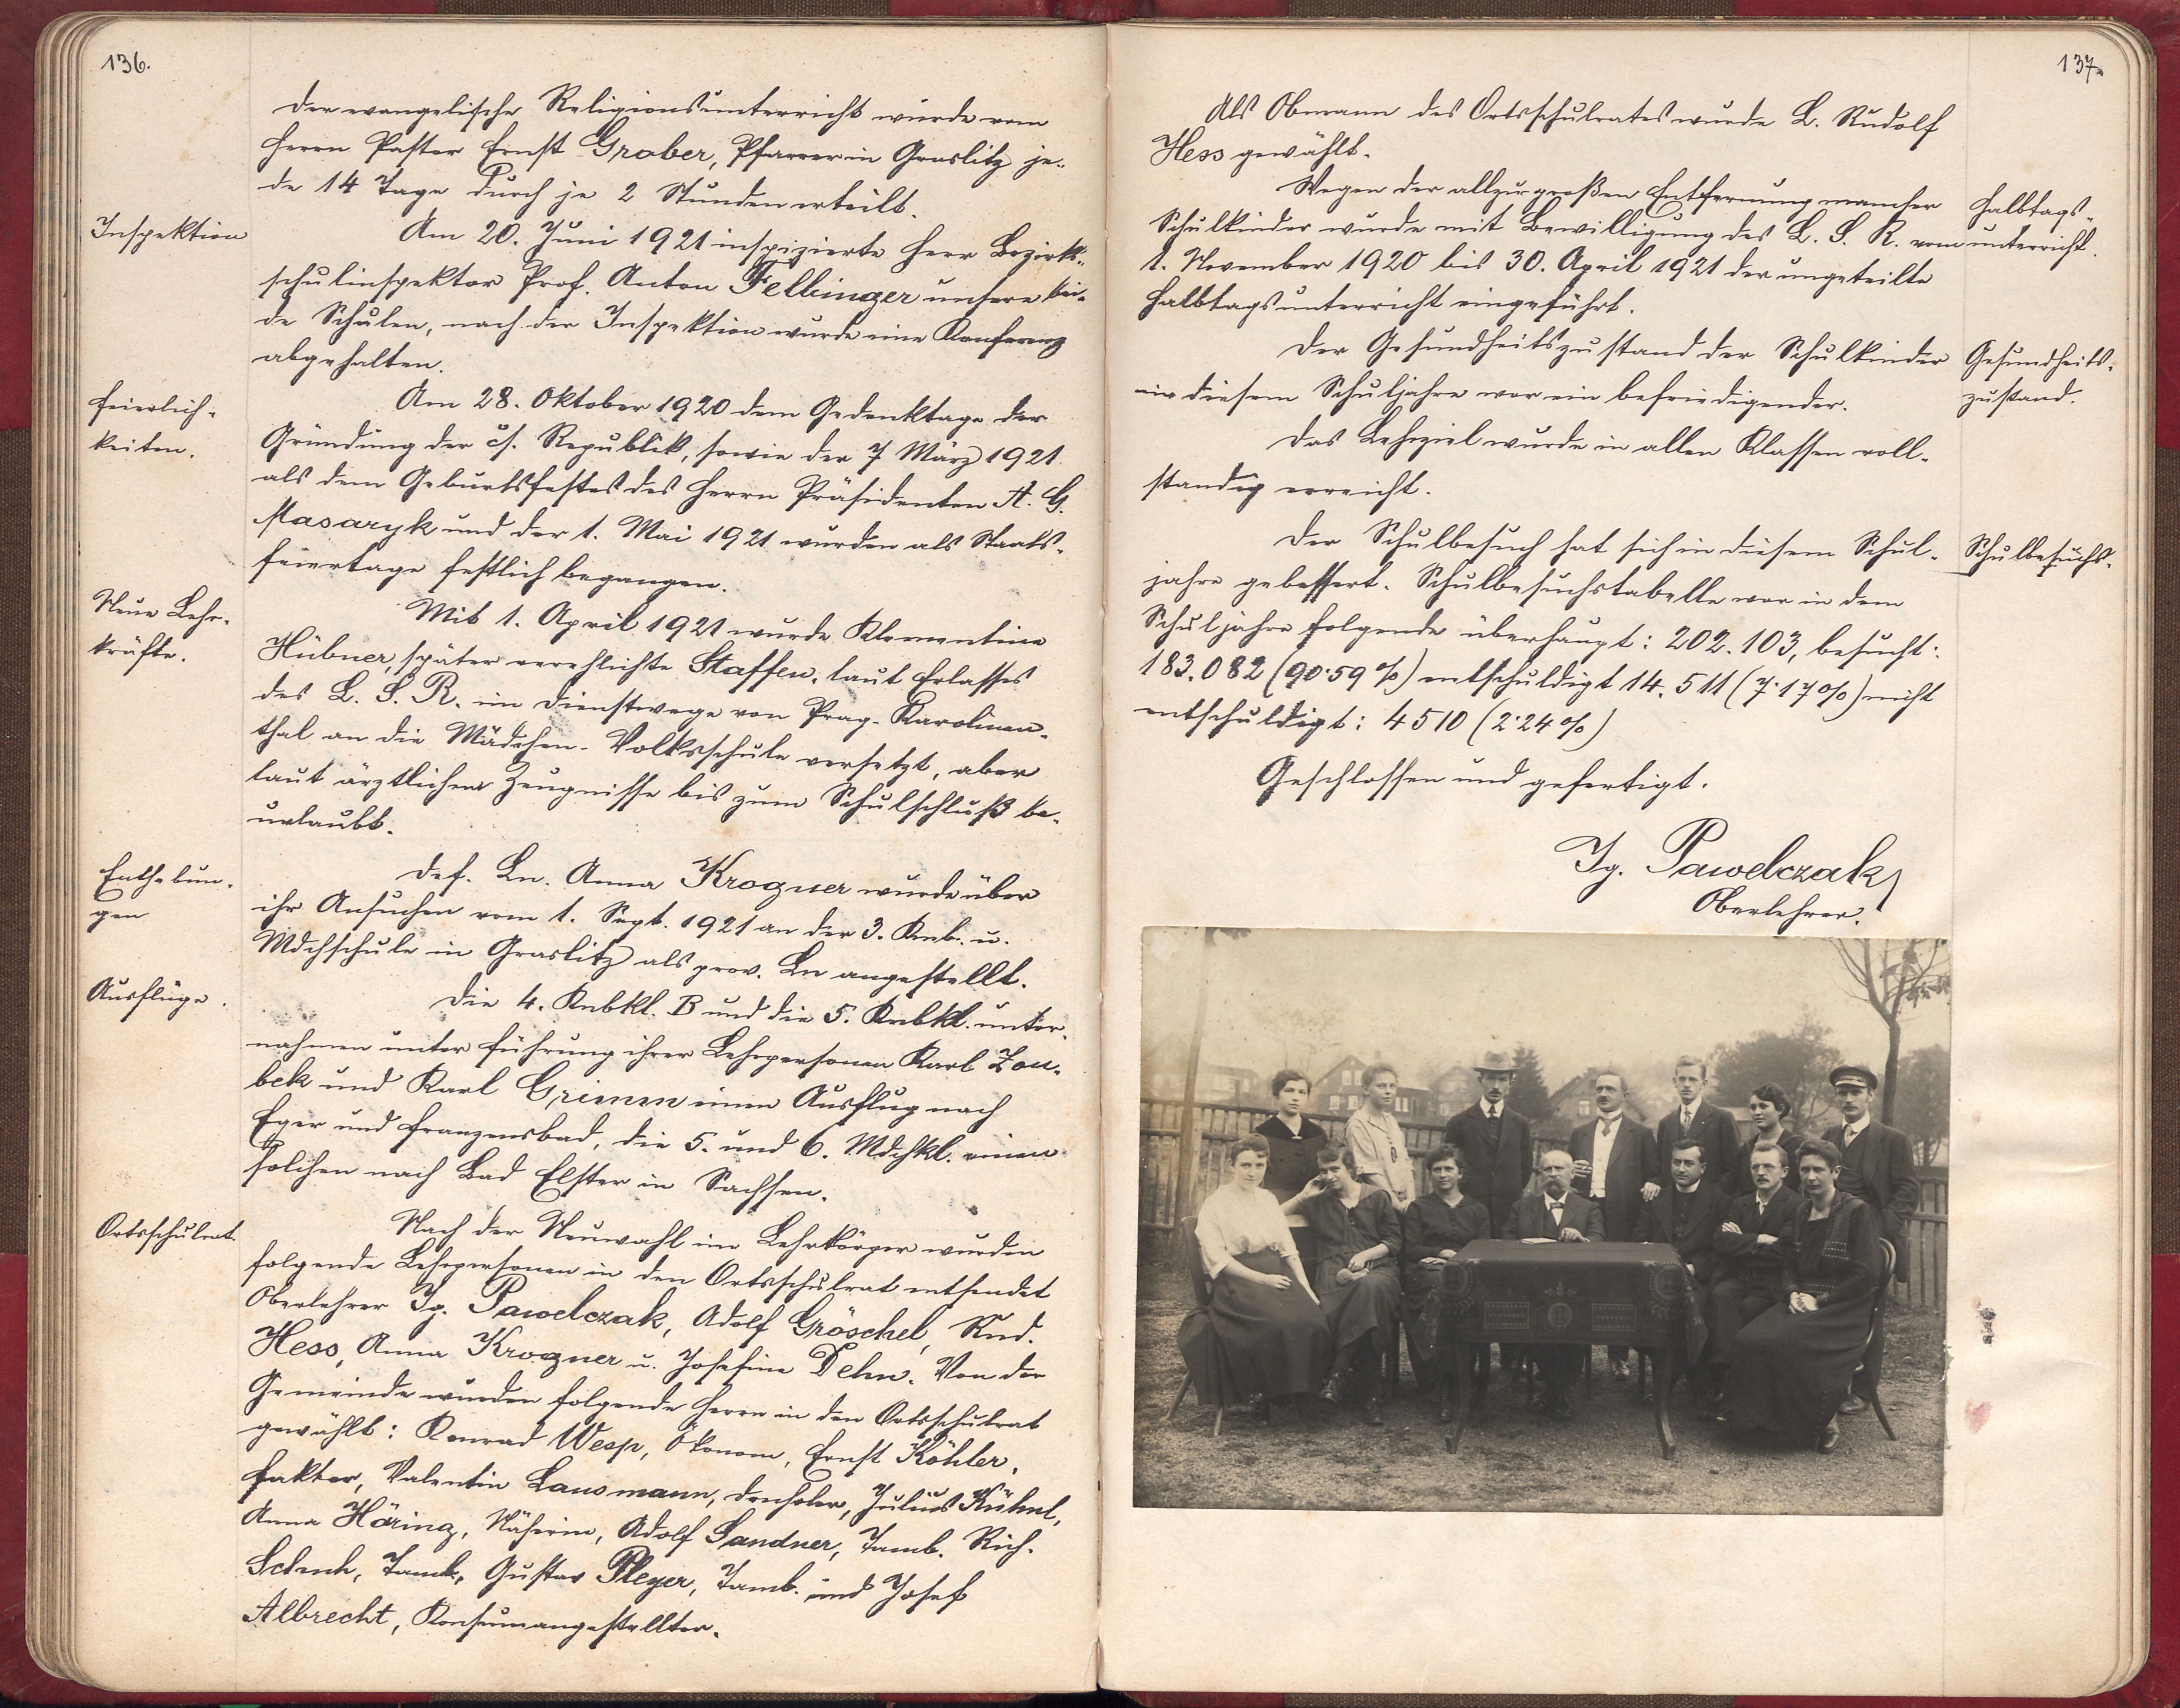 136.
Der evangelische Religionsunterricht wurde vom
Herrn Pastor Ernst Grober, Pfarrer in Graslitz je-
de 14 Tage durch je 2 Stunden erteilt.
Inspektion
Am 20. Juni 1921 inspizierte Herr Bezirks-
schulinspektor Prof. Anton Felbinger unsere bei-
de Schulen, nach der Inspektion wurde eine Konferenz
abgehalten.
Feierlich-
keiten.
Am 28. Oktober 1920 dem Gedenktage der
Gründung der čs. Republik, sowie der 7 März 1921
als dem Geburtsfestes des Herrn Präsidenten A. G.
Masaryk und der 1. Mai 1921 wurden als Staats-
feiertage festlich begangen.
Neue Lehr-
kräfte.
Mit 1. April 1921 wurde Klementine
Hübner, später verehlichte Staffen, laut Erlasses
des L. S. R. im Dienstwege von Prag-Karolinen-
thal an die Mädchen-Volksschule versetzt, aber
laut ärztlichem Zeugnisse bis zum Schulschluß be-
urlaubt.
Enthebun-
gen
Def. Ln. Anna Krogner wurde über
ihr Ansuchen vom 1. Sept. 1921 an der 3. Knb. u.
Mdchschule in Graslitz als prov. Ln angestellt.
Ausflüge.
Die 4. Knbkl. B und die 5. Knbkl. unter-
nahmen unter Führung ihrer Lehrpersonen Karl Zou-
bek und Karl Grimm einen Ausflug nach
Eger und Franzensbad, die 5. und 6. Mdchkl. einen
solchen nach Bad Elster in Sachsen.
Ortsschulrat.
Nach der Neuwahl im Lehrkörper wurden
folgende Lehrpersonen in den Ortsschulrat entsendet
Oberlehrer Ig. Pawelczak, Adolf Gröschel, Rud.
Hess, Anna Krogner u. Josefine Dehn. Von der
Gemeinde wurden folgende Herrn in den Ortsschulrat
gewählt: Konrad Wesp, Ökonom, Ernst Köhler,
Faktor, Valentin Lausmann, Drechsler, Julius Kühnl,
Anna Häring, Näherin, Adolf Sandner, Tamb. Rich.
Schuh, Tamb., Gustav Pleyer, Tamb. und Josef
Albrecht, Konsumangestellter.
137.
Als Obmann des Ortsschulrates wurde L. Rudolf
Hess gewählt.
Wegen der allzugroßen Entfernung mancher
Halbtags-
Schulkinder wurde mit Bewilligung des L. S. R. vom
unterricht.
1. November 1920 bis 30. April 1921 der ungeteilte
Halbtagsunterricht eingeführt.
Der Gesundheitszustand der Schulkinder
Gesundheits-
in diesem Schuljahre war ein befriedigender.
zustand.
Das Lehrziel wurde in allen Klassen voll-
standig erreicht.
Der Schulbesuch hat sich in diesem Schul-
Schulbesuchs-
jahre gebessert. Schulbesuchstabelle war in dem
Schuljahre folgende überhaupt: 202.103, besucht:
183.082 (90·59%) entschuldigt 14.511 (7·17%) nicht
entschuldigt: 4510 (2·24%)
Geschlossen und gefertigt.
Ig. Pawelczak
Oberlehrer.